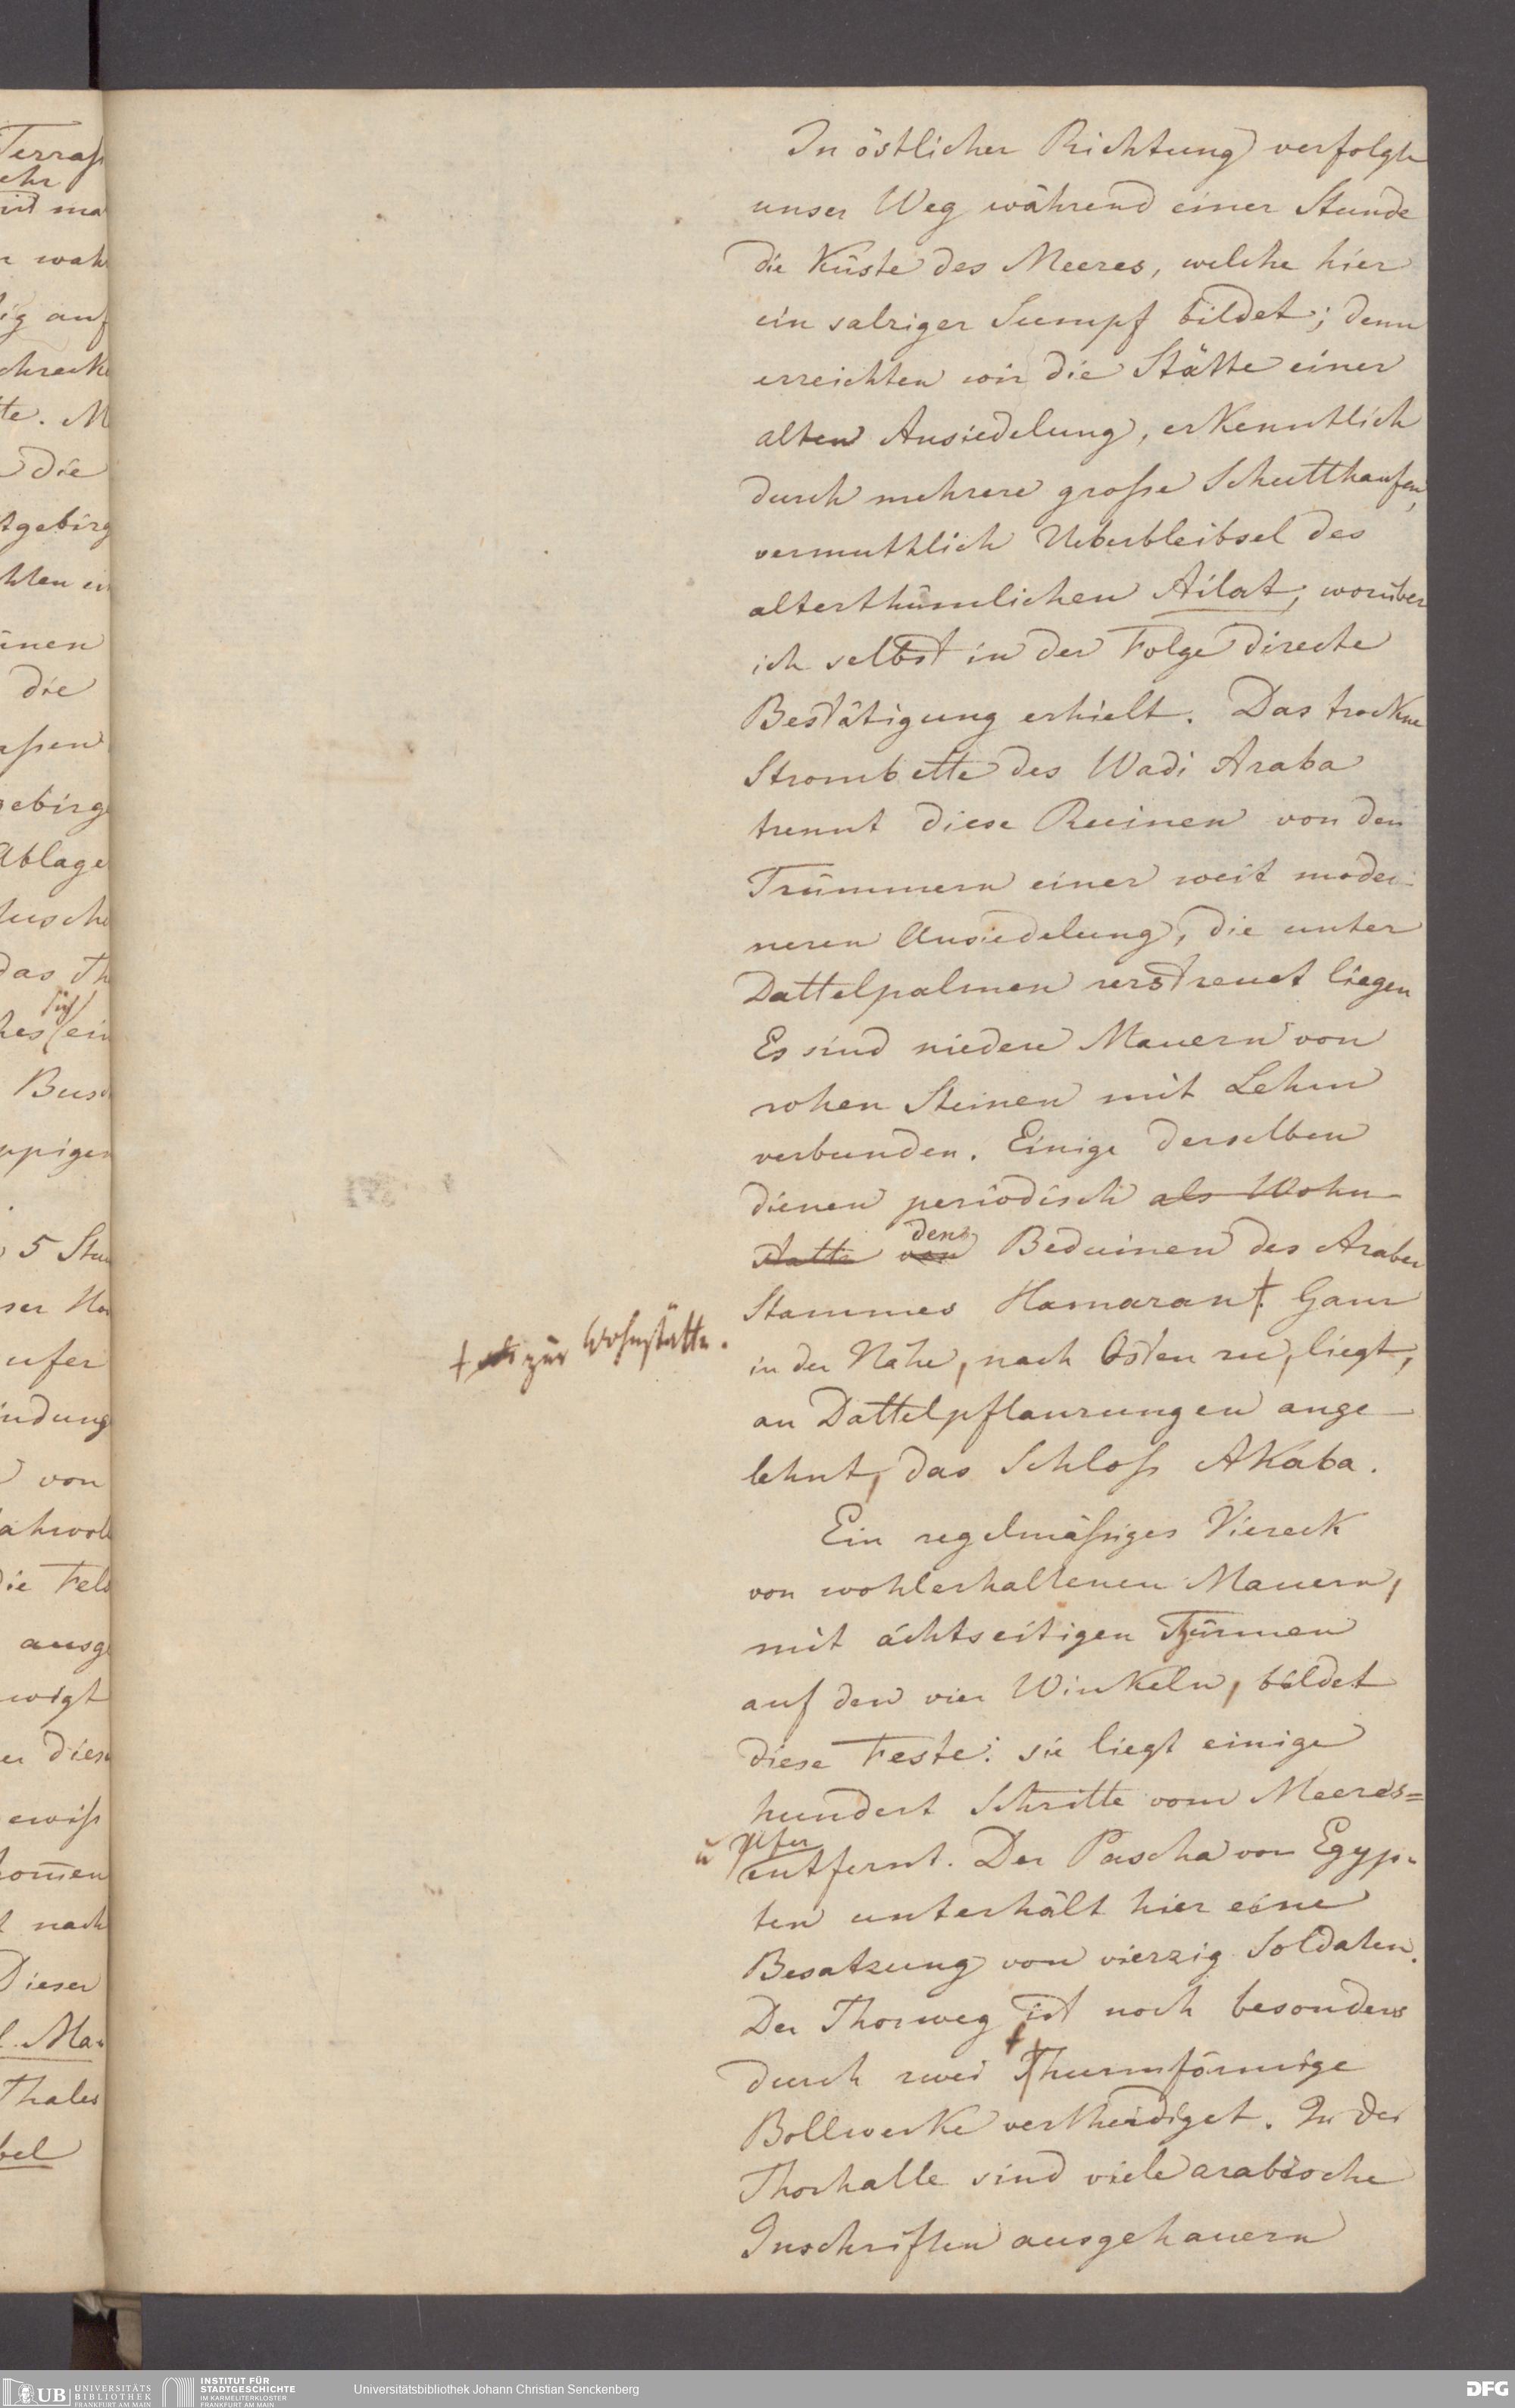 Terraß
ehr
ist ma
r wah
ig auf
chreck
te. M
die
tgebirg
hlen ei
einen
die
aßen
gebirg
Ablage
husche
das Th
sich
hes ein
Busc
ppigen
5 Stun
ser
ufer
indung
von
ahwol
die Fels
ausge
wigt
er diese
ewiß
kom̄en
t nach
Dieser
l. Mar
Thales
bel
In östlicher Richtung verfolgte
unser Weg während einer Stunde
die Küste des Meeres, welche hier
ein salziger Sumpf bildet; denn
erreichten wir die Stätte einer
alten Ansiedelung, erkenntlich
durch mehrere große Schutthaufen,
vermuthlich Ueberbleibsel des
alterthümlichen Ailat, worüber
ich selbst in der Folge directe
Bestätigung erhielt. Das trockne
Strombette des Wadi Araba
trennt diese Ruinen von den
Trümmern einer weit moder-
neren Ansiedelung, die unter
Dattelpalmen zerstreuet liegen
Es sind niedere Mauern von
rohen Steinen mit Lehm
verbunden. Einige derselben
dienen periodisch als Wohn
statte von den Beduinen des Araber
Stammes Hamaran †. Ganz
+ als zur Wohnstätte.
in der Nähe, nach Osten zu, liegt,
an Dattelpflanzungen ange-
lehnt, das Schloß Akaba.
Ein regelmäßiges Viereck
von wohlerhaltenen Mauern,
mit achtseitigen Thürmen
auf den vier Winkeln, bildet
diese Feste: sie liegt einige
hundert Schritte vom Meeres=
ü ufer
entfernt. Der Pascha von Egyp-
ten unterhält hier eine
Besatzung von vierzig Soldaten.
Der Thorweg ist noch besonders
durch zwei thurmförmige
Bollwerke vertheidiget. In der
Thorhalle sind viele arabische
Inschriften ausgehauern
UB UNIVERSITÄTS
BIBLIOTHEK
FRANKFURT AM MAIN
INSTITUT FÜR
STADTGESCHICHTE
IM KARMELITERKLOSTER
FRANKFURT AM MAIN
Universitätsbibliothek Johann Christian Senckenberg
DFG